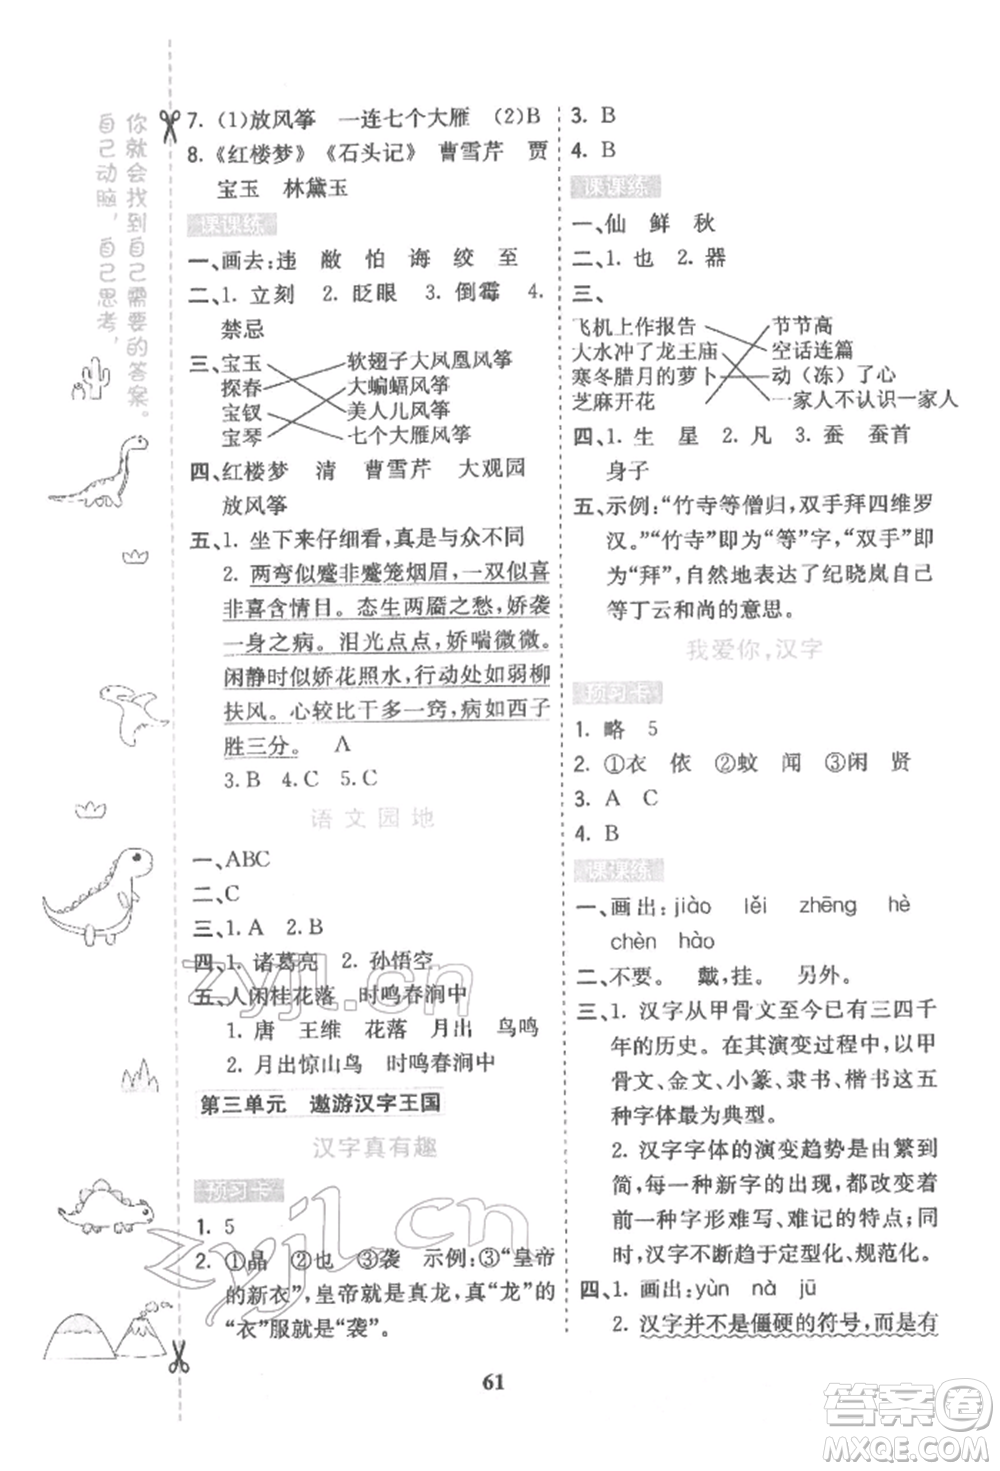 你就会找到自己需要的答案。
自己动脑，自己思考，
7. (1)放风筝 一连七个大雁 (2)B
8.《红楼梦》《石头记》 曹雪芹 贾
宝玉 林黛玉
课课练
一、画去:违 敝 怕 诲 绞 至
二、1. 立刻 2. 眨眼 3. 倒霉 4.
禁忌
三、宝玉 软翅子大凤凰风筝
探春 大蝙蝠风筝
宝钗 美人儿风筝
宝琴 七个大雁风筝
四、红楼梦 清 曹雪芹 大观园
放风筝
五、1. 坐下来仔细看，真的有点不同
2. 两弯似蹙非蹙笼烟眉，一双似喜
非喜含情目。态生两靥之愁，娇袭
一身之病。泪光点点，娇喘微微。
闲静时似娇花照水，行动处如弱柳
扶风。心较比干多一窍，病如西子
胜三分。 A
3. B 4. C 5. C
语文园地
一、ABC
二、C
三、1. A 2. B
四、1. 诸葛亮 2. 孙悟空
五、人闲桂花落 时鸣春涧中
1. 唐 王维 花落 月出 鸟鸣
2. 月出惊山鸟 时鸣春涧中
第三单元 遨游汉字王国
汉字真有趣
预习卡
1. 5
2. ①晶 ②也 ③袭 示例:③“皇帝
的新衣”，皇帝就是真龙，真“龙”的
“衣”服就是“袭”。
3. B
4. B
课课练
一、仙 鲜 秋
二、1. 也 2. 器
三、
飞机上作报告 节节高
大水冲了龙王庙 空话连篇
寒冬腊月的萝卜 动（冻）了心
芝麻开花 一家人不认识一家人
四、1. 生 星 2. 凡 3. 蚕 蚕首
身子
五、示例:“竹寺等僧归，双手拜四维罗
汉。”“竹寺”即为“等”字，“双手”即
为“拜”，自然地表达了纪晓岚自己
等丁云和尚的意思。
我爱你，汉字
预习卡
1. 略 5
2. ①衣 依 ②蚊 闻 ③闲 贤
3. A C
4. B
课课练
一、画出:jiào lěi zhēng hè
chèn hào
二、不要。 戴，挂。 另外。
三、1. 汉字从甲骨文至今已有三四千
年的历史。在其演变过程中，以甲
骨文、金文、小篆、隶书、楷书这五
种字体最为典型。
2. 汉字字体的演变趋势是由繁到
简，每一种新字的出现，都改变了
前一种字形难写、难记的特点；同
时，汉字不断趋于定型化、规范化。
四、1. 画出:yùn nà jū
2. 汉字并不是僵硬的符号，而是有
61
zyjl.cn
zyjl.cn
答案圈
MXQE.COM